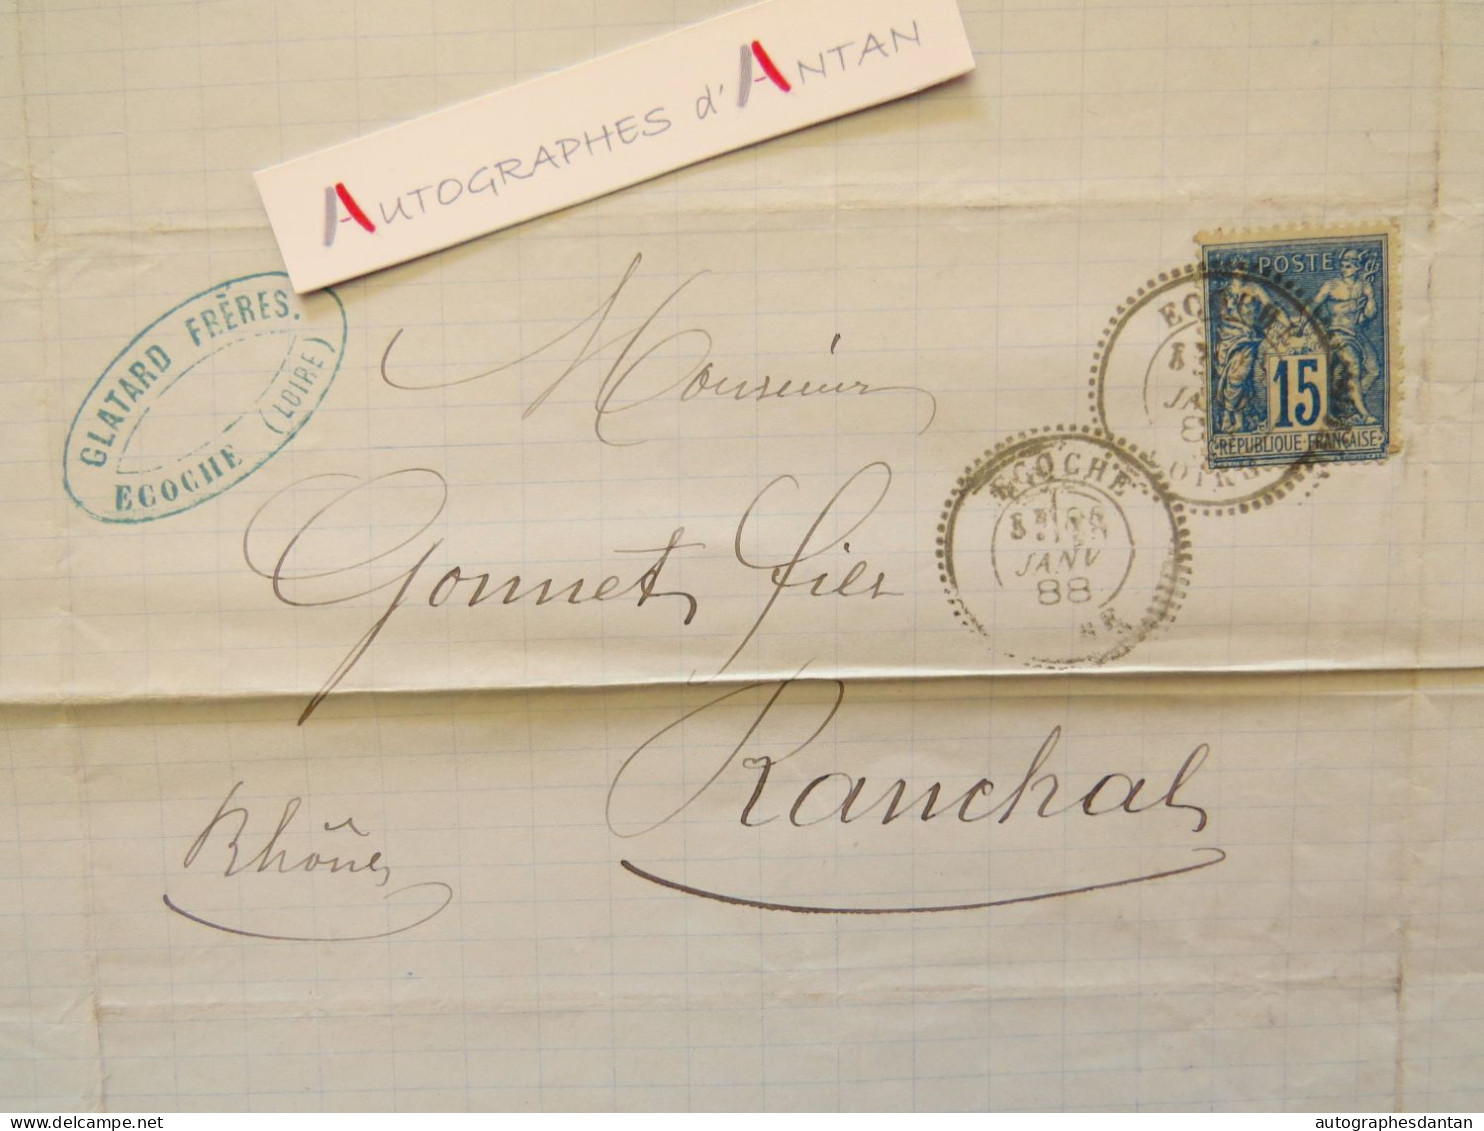 AUTOGRAPHES d'ANTAN
GLATARD FRÈRES.
ECOCHE (LOIRE)
POSTE
15
RÉPUBLIQUE FRANÇAISE
ECOCHE
JANV
88
Monsieur
Gonnet fils
Ranchal
Rhône
delcampe.net
autographesdantan